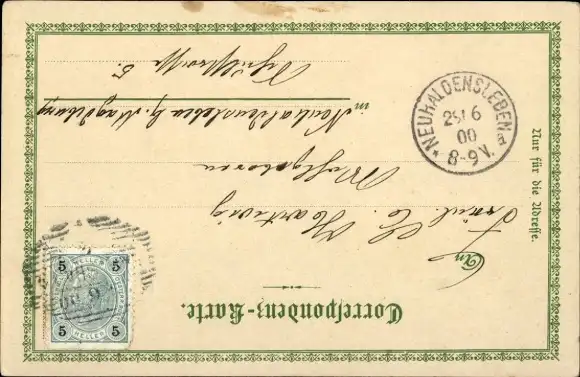 Correspondenz-Karte.
An
Fräul. E. Hartwig
Wohlgeboren
in Neuhaldensleben b. Magdeburg
Schulstrasse 5.
Nur für die Adresse.
NEUHALDENSLEBEN
a
29 6
00
8-9V.
5 5
HELLER
5 5
HELLER